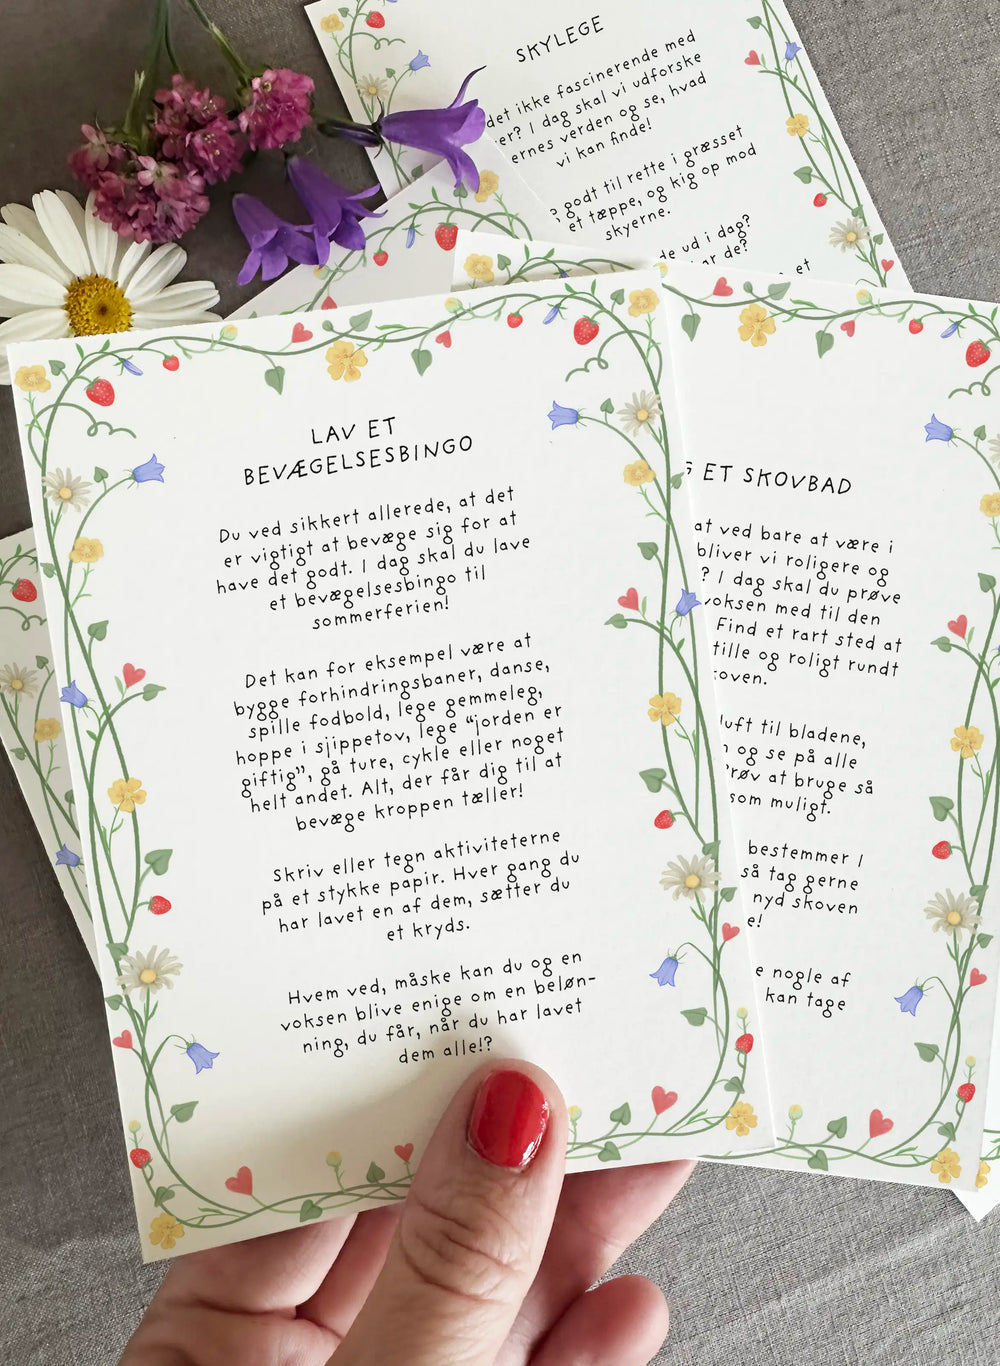 SKYLEGE
det ikke fascinerende med
er? I dag skal vi udforske
ernes verden og se, hvad
vi kan finde!
godt til rette i græsset
et tæppe, og kig op mod
skyerne.
de ud i dag?
ar de?
et
LAV ET
BEVÆGELSESBINGO
Du ved sikkert allerede, at det
er vigtigt at bevæge sig for at
have det godt. I dag skal du lave
et bevægelsesbingo til
sommerferien!
Det kan for eksempel være at
bygge forhindringsbaner, danse,
spille fodbold, lege gemmeleg,
hoppe i sjippetov, lege “jorden er
giftig”, gå ture, cykle eller noget
helt andet. Alt, der får dig til at
bevæge kroppen tæller!
Skriv eller tegn aktiviteterne
på et stykke papir. Hver gang du
har lavet en af dem, sætter du
et kryds.
Hvem ved, måske kan du og en
voksen blive enige om en beløn-
ning, du får, når du har lavet
dem alle!?
G ET SKOVBAD
at ved bare at være i
bliver vi roligere og
? I dag skal du prøve
voksen med til den
Find et rart sted at
tille og roligt rundt
oven.
luft til bladene,
og se på alle
Prøv at bruge så
som muligt.
bestemmer I
så tag gerne
nyd skoven
e!
e nogle af
kan tage